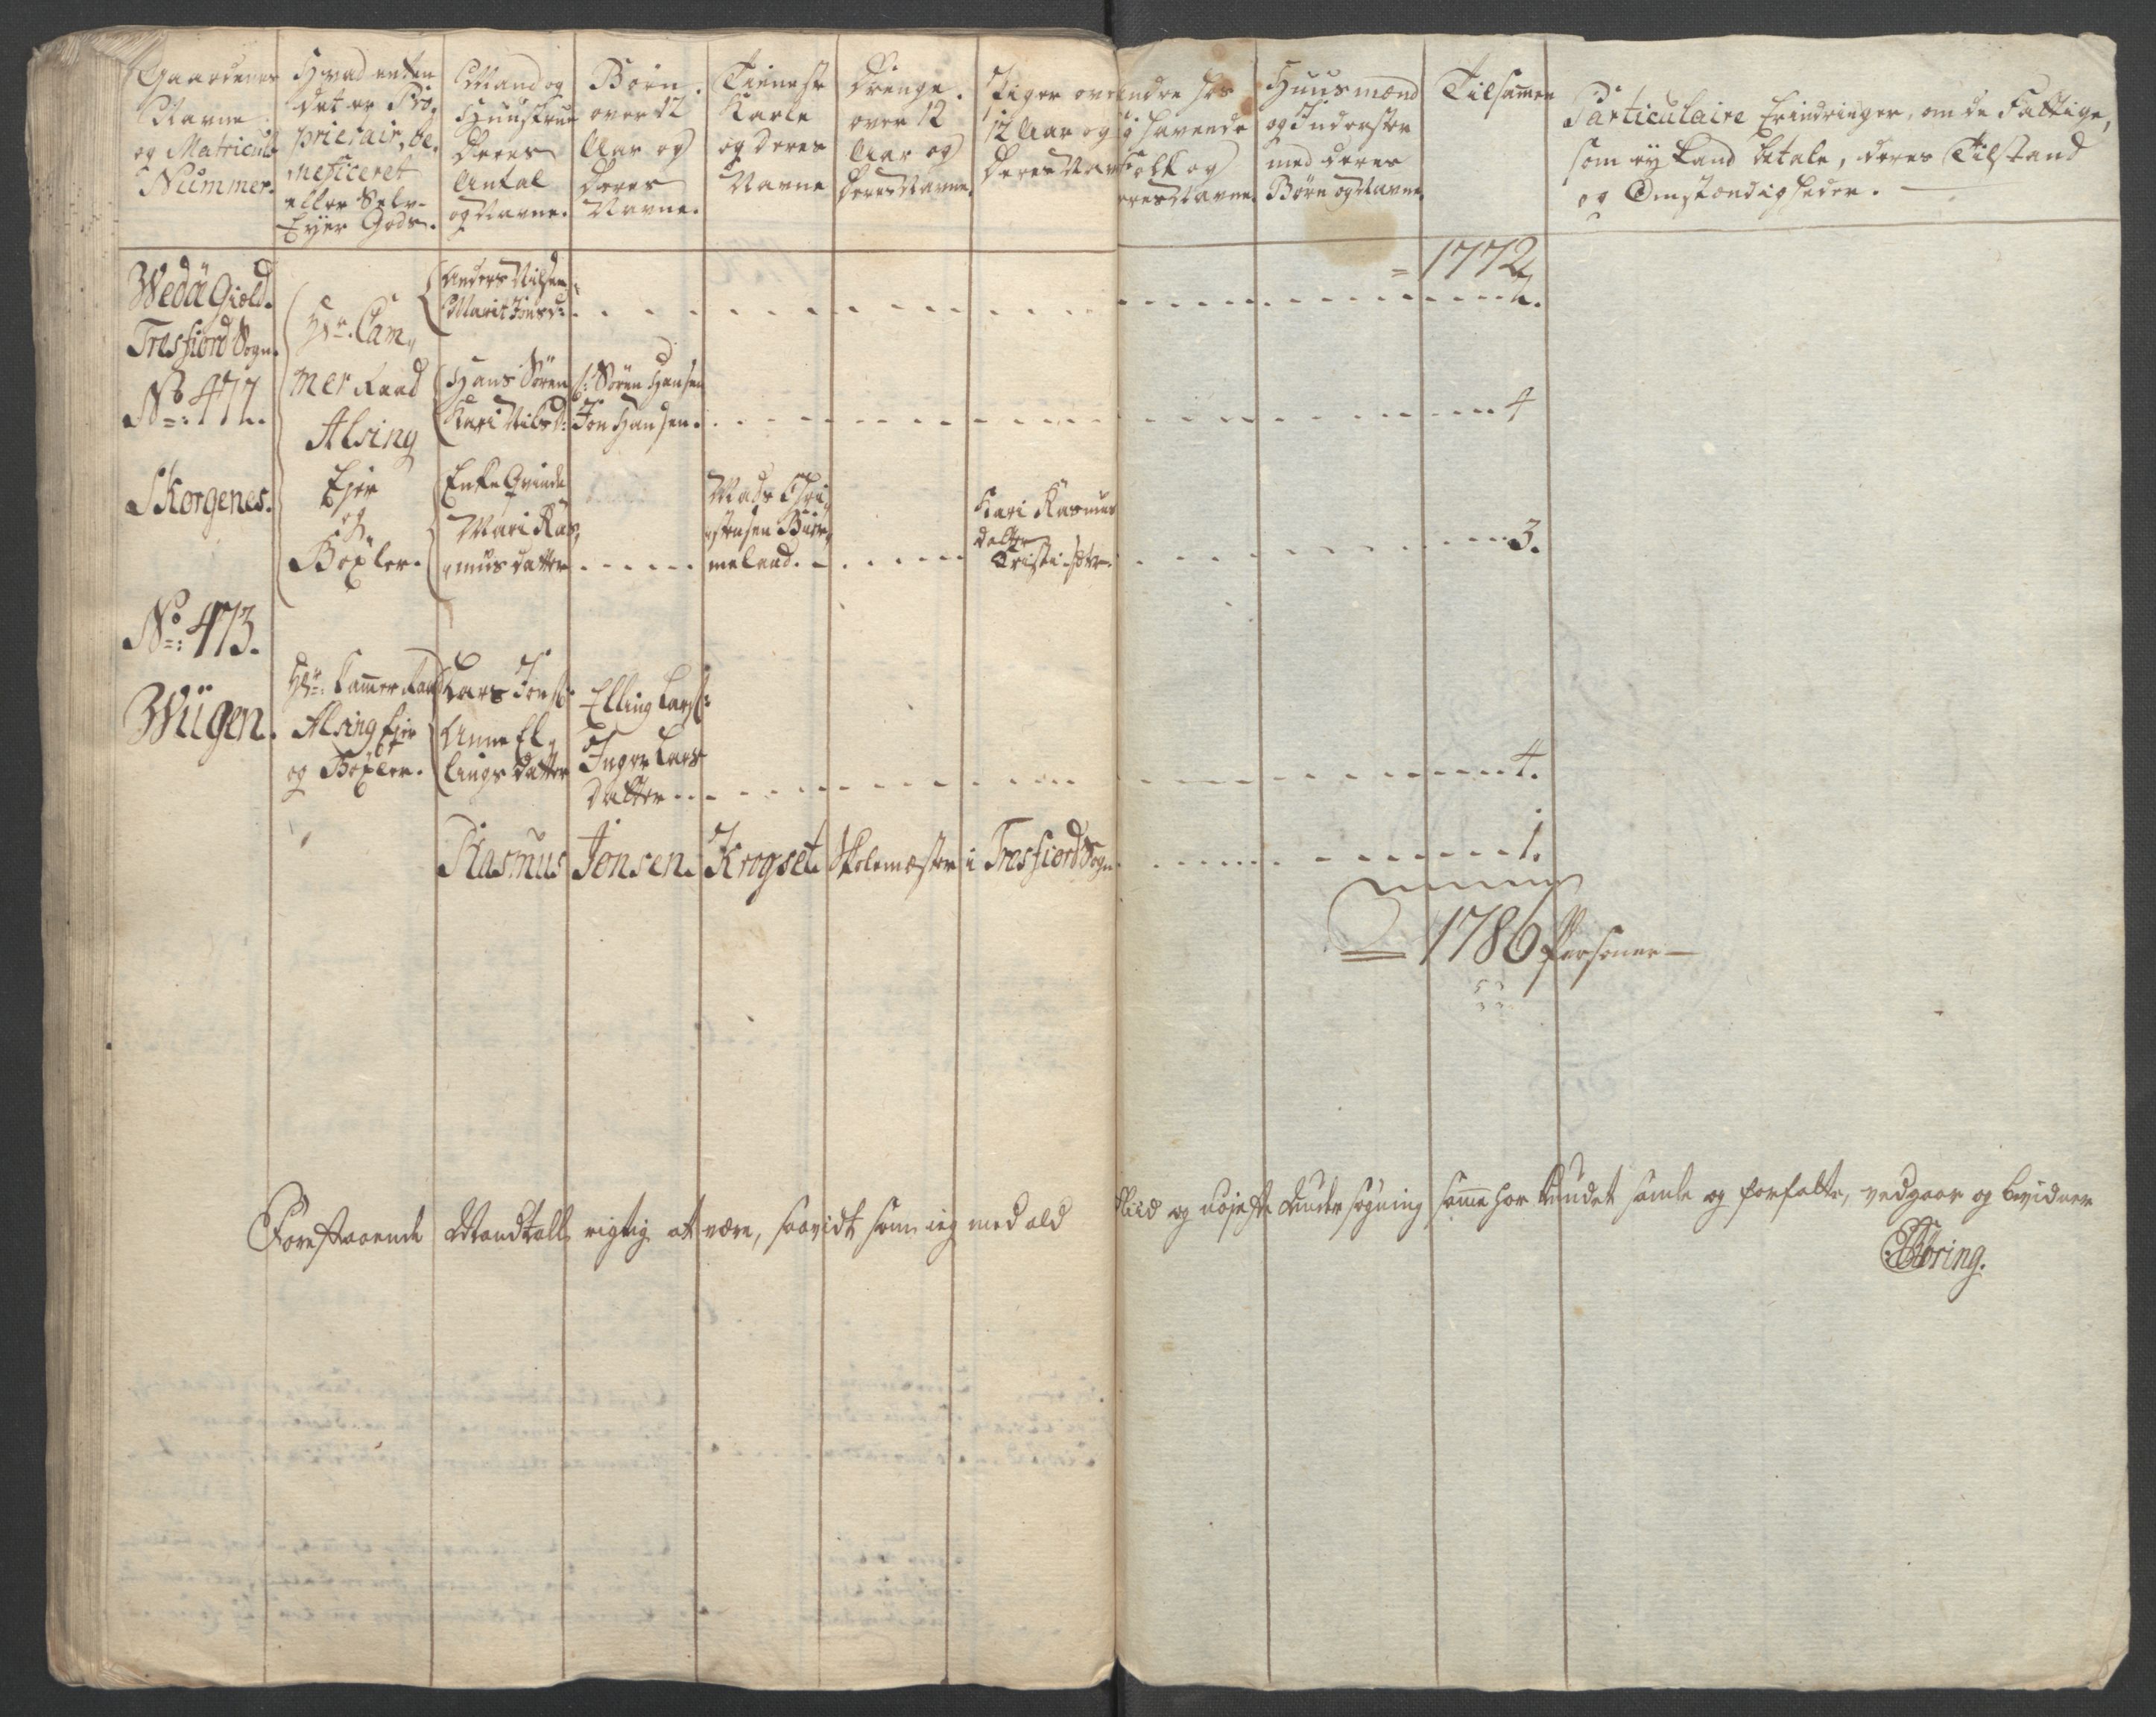 Gaardenes
Navne
og Matricul
Nummer.
Hvad enten
det er Pro,
prietair, be,
neficeret
eller Selv-
Ejer Gods.
Mand og
Huustrue
Deres
Antal
og Navne.
Børn
over 12
Aar og
Deres
Navne.
Tieneste
Karle
og deres
Navne
Drenge.
over 12
Aar og
Deres Navne.
Piger over
12 Aar og
Deres Nav
Andre hos
sig havende
Folk og
eres Navne.
Huusmænd
og Inderster
med deres
Børn og Navne.
Tilsammen
Particulaire Erindringer, om de Fattige,
som ej kand betale, deres Tilstand
og Omstændigheder.
= 1772
Wedøe Giæld.
Tresfiord Sogn.
No: 472.
Skorgenes.
Hr. Cam,,
mer Raad
Alsing
Ejer
og
Boxler.
Anders Nilsen
Marit Jonsd: 2.
Hans Søren
Kari Nilsd:
S: Søren Hansen
Jon Hansen. 4
Enke Qvinde
Mari Ras,
mus datter
Mads Chri,,
stensen Biør,
meland.
Kari Rasmus
datter
3.
No: 473.
Wügen.
Hr: Cammer Raad
Alsing Ejer
og Boxler.
Lars Jons:
Anne El,
lings datter
Elling Lars:
Inger Lars
Datter 4.
Rasmus Jonsen Krogset Skolemester i Tresfiord Sogn 1.
= 1786 Personer
Forestaaende Mandtall rigtig at være, saavidt som ieg med ald Fliid og nøjeste Undersøgning samme har kundet samle og forfatte, vedgaar og bevidner